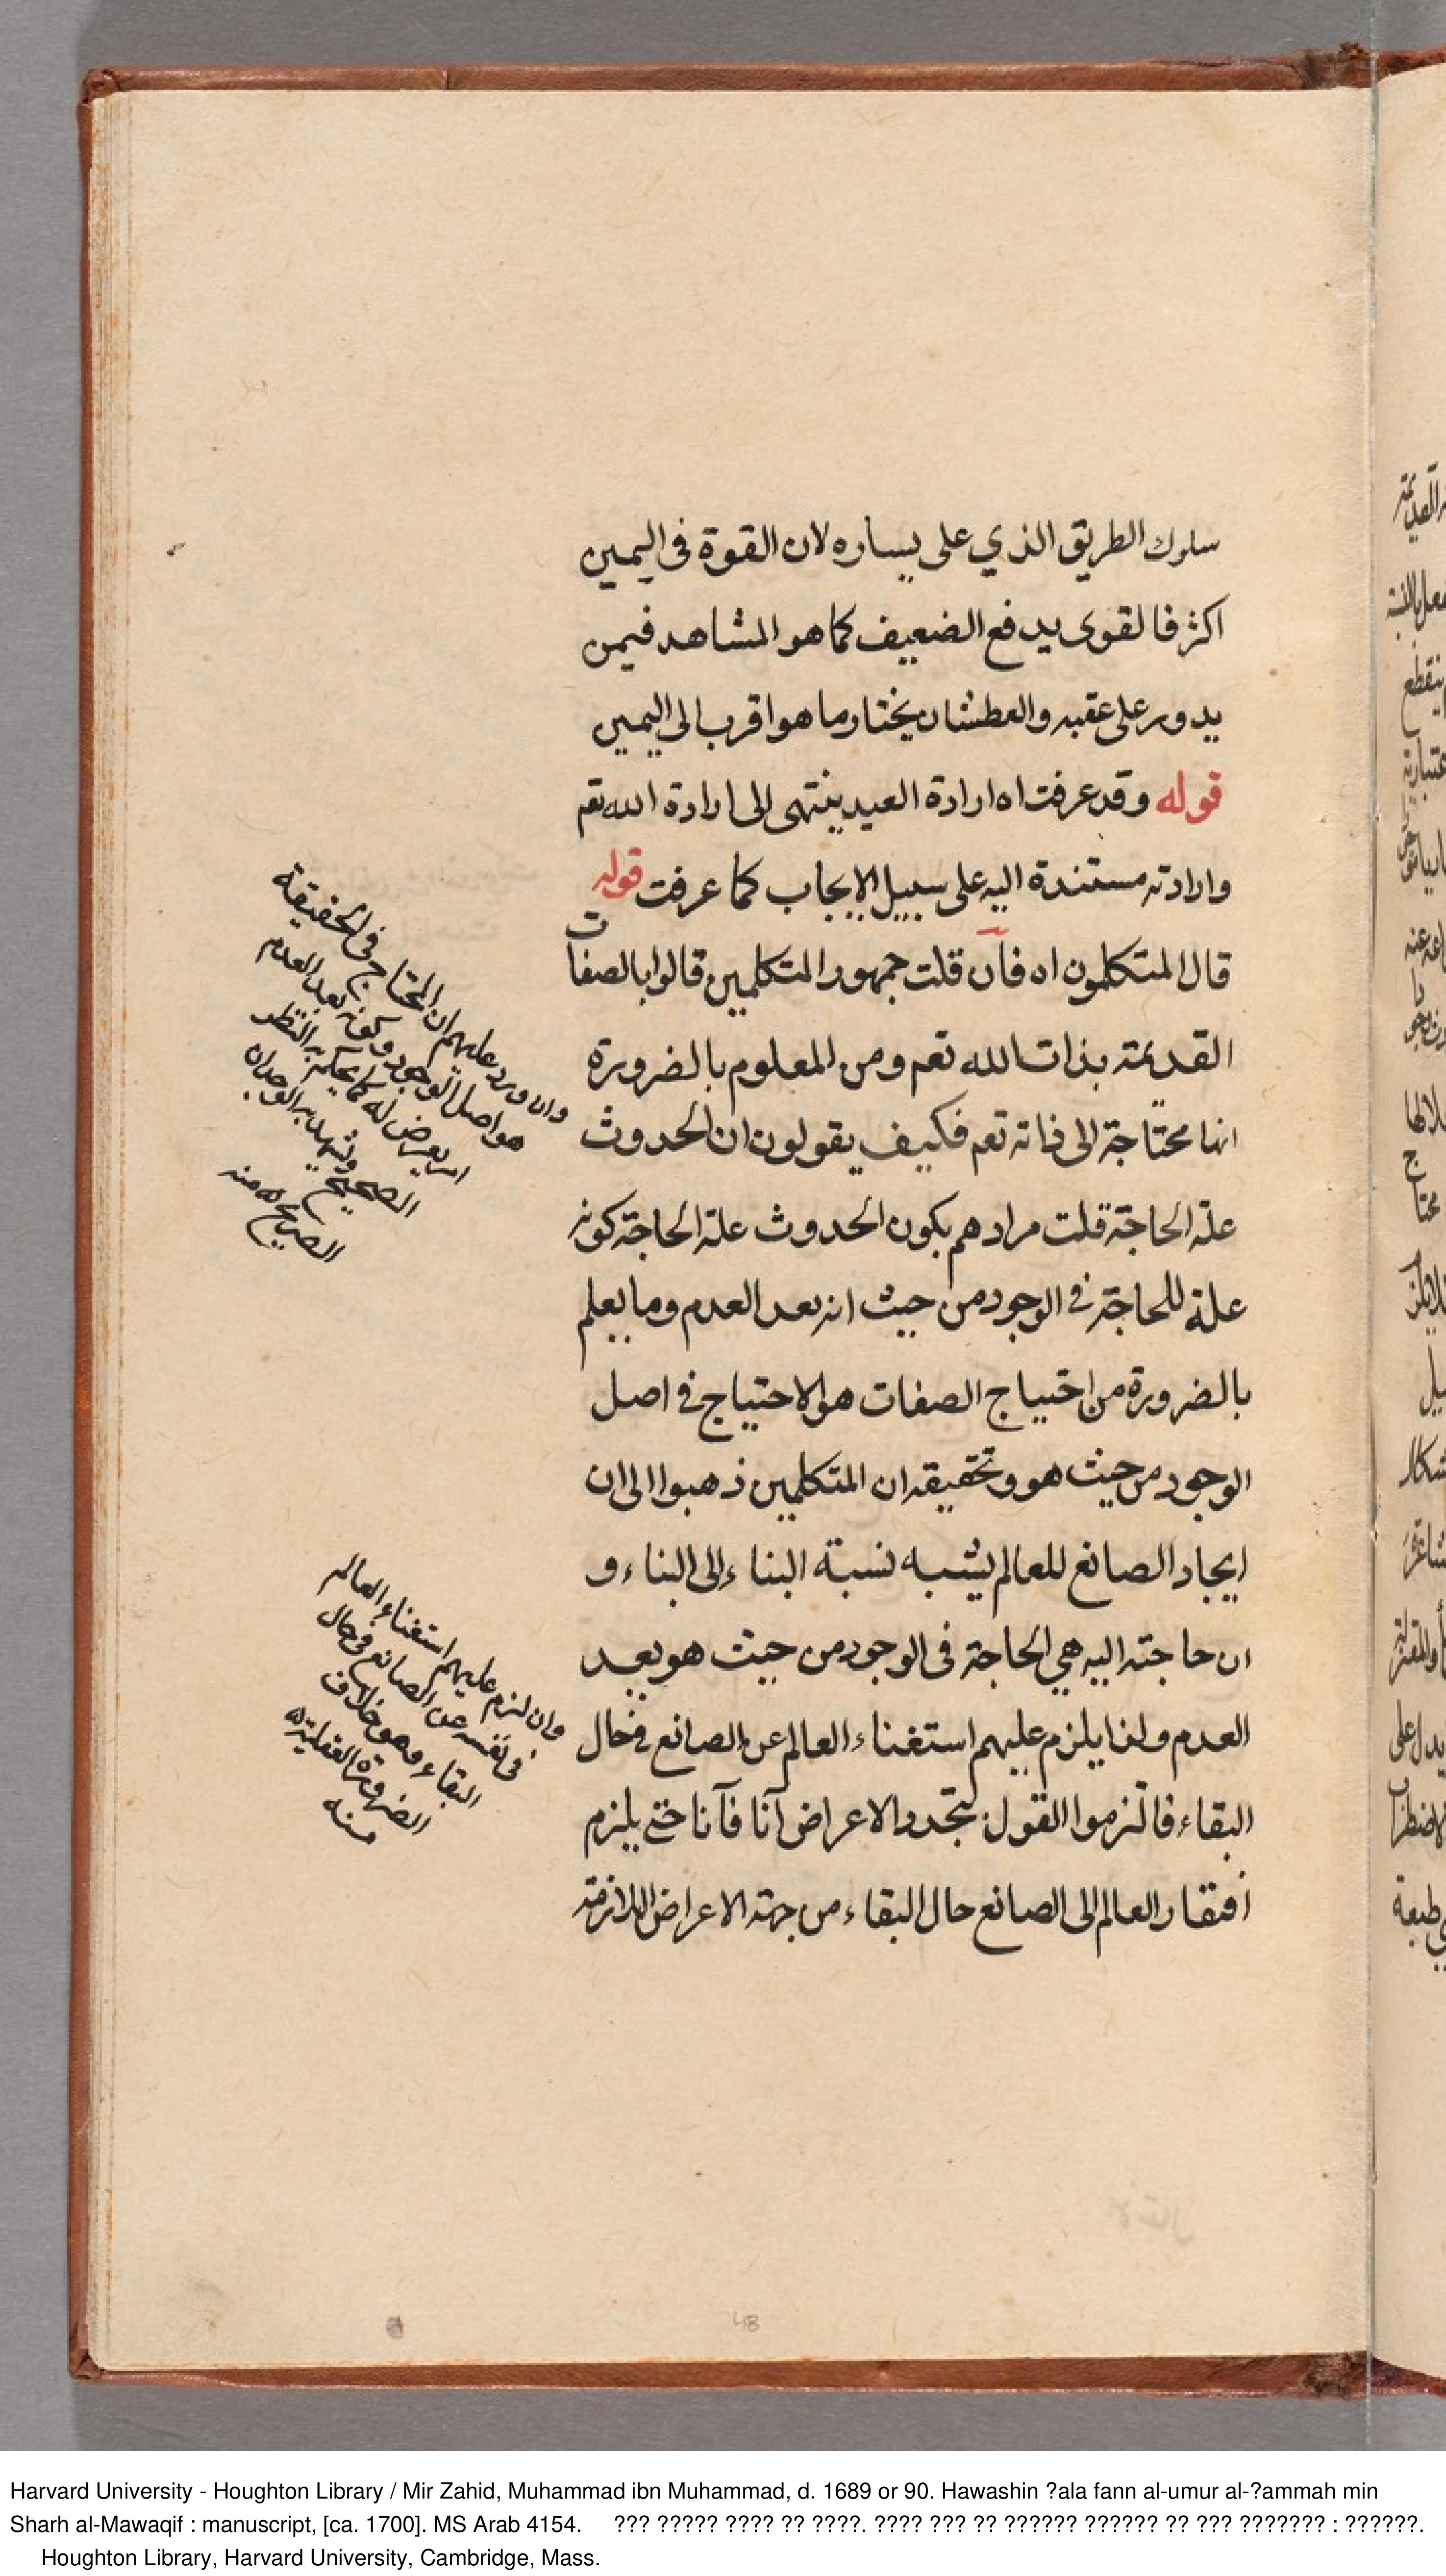 سلوك الطريق الذي على يساره لان القوة فى اليمين
اكثر فالقوى يدفع الضعيف كما هو المشاهد فيمن
يدور على عقبه والعطشان يختار ما هو اقرب الى اليمين
قوله وقد عرفت اه ارادة العبد ينتهى الى ارادة الله تعم
وارادته مستندة اليه على سبيل الايجاب كما عرفت قوله
قال المتكلمون اه فان قلت جمهور المتكلمين قالوا بالصفات
القديمة بذات الله تعم ومن المعلوم بالضرورة
انها محتاجة الى ذاته تعم فكيف يقولون ان الحدوث
علة الحاجة قلت مرادهم بكون الحدوث علة الحاجة كونه
علة للحاجة فى الوجود من حيث انه بعد العدم وما يعلم
بالضرورة من احتياج الصفات هو الاحتياج فى اصل
الوجود من حيث هو وتحقيقه ان المتكلمين ذهبوا الى ان
ايجاد الصانع للعالم يشبه نسبة البناء الى البناء و
ان حاجته اليه هي الحاجة فى الوجود من حيث هو بعد
العدم ولذا يلزم عليهم استغناء العالم عن الصانع فى حال
البقاء فالتزموا القول بتجدد الاعراض آنا فآنا حتى يلزم
افتقار العالم الى الصانع حال البقاء من جهة الاعراض اللازمة
وان ورد عليهم ان المحتاج فى الحقيقة
هو اصل الوجود وكونه بعد العدم
امر يعرض له كما يحكم به النظر
الصحيح ويشهد به الوجدان
الصريح منه
وان لزم عليهم استغناء العالم
فى نفسه عن الصانع فى حال
البقاء وهو خلاف
الضرورة العقلية
منه
48
Harvard University - Houghton Library / Mir Zahid, Muhammad ibn Muhammad, d. 1689 or 90. Hawashin ?ala fann al-umur al-?ammah min
Sharh al-Mawaqif : manuscript, [ca. 1700]. MS Arab 4154. ??? ????? ???? ?? ????. ???? ??? ?? ?????? ?????? ?? ??? ??????? : ??????.
Houghton Library, Harvard University, Cambridge, Mass.